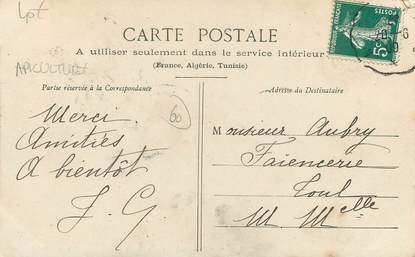 Lot
CARTE POSTALE
A utiliser seulement dans le service intérieur
(France, Algérie, Tunisie)
APICULTURE
Partie réservée à la Correspondance
Adresse du Destinataire
60
Merci
Amitiés
A bientôt
J. G
Monsieur Aubry
Faiencerie
Toul
M. Mlle
POSTES
5c